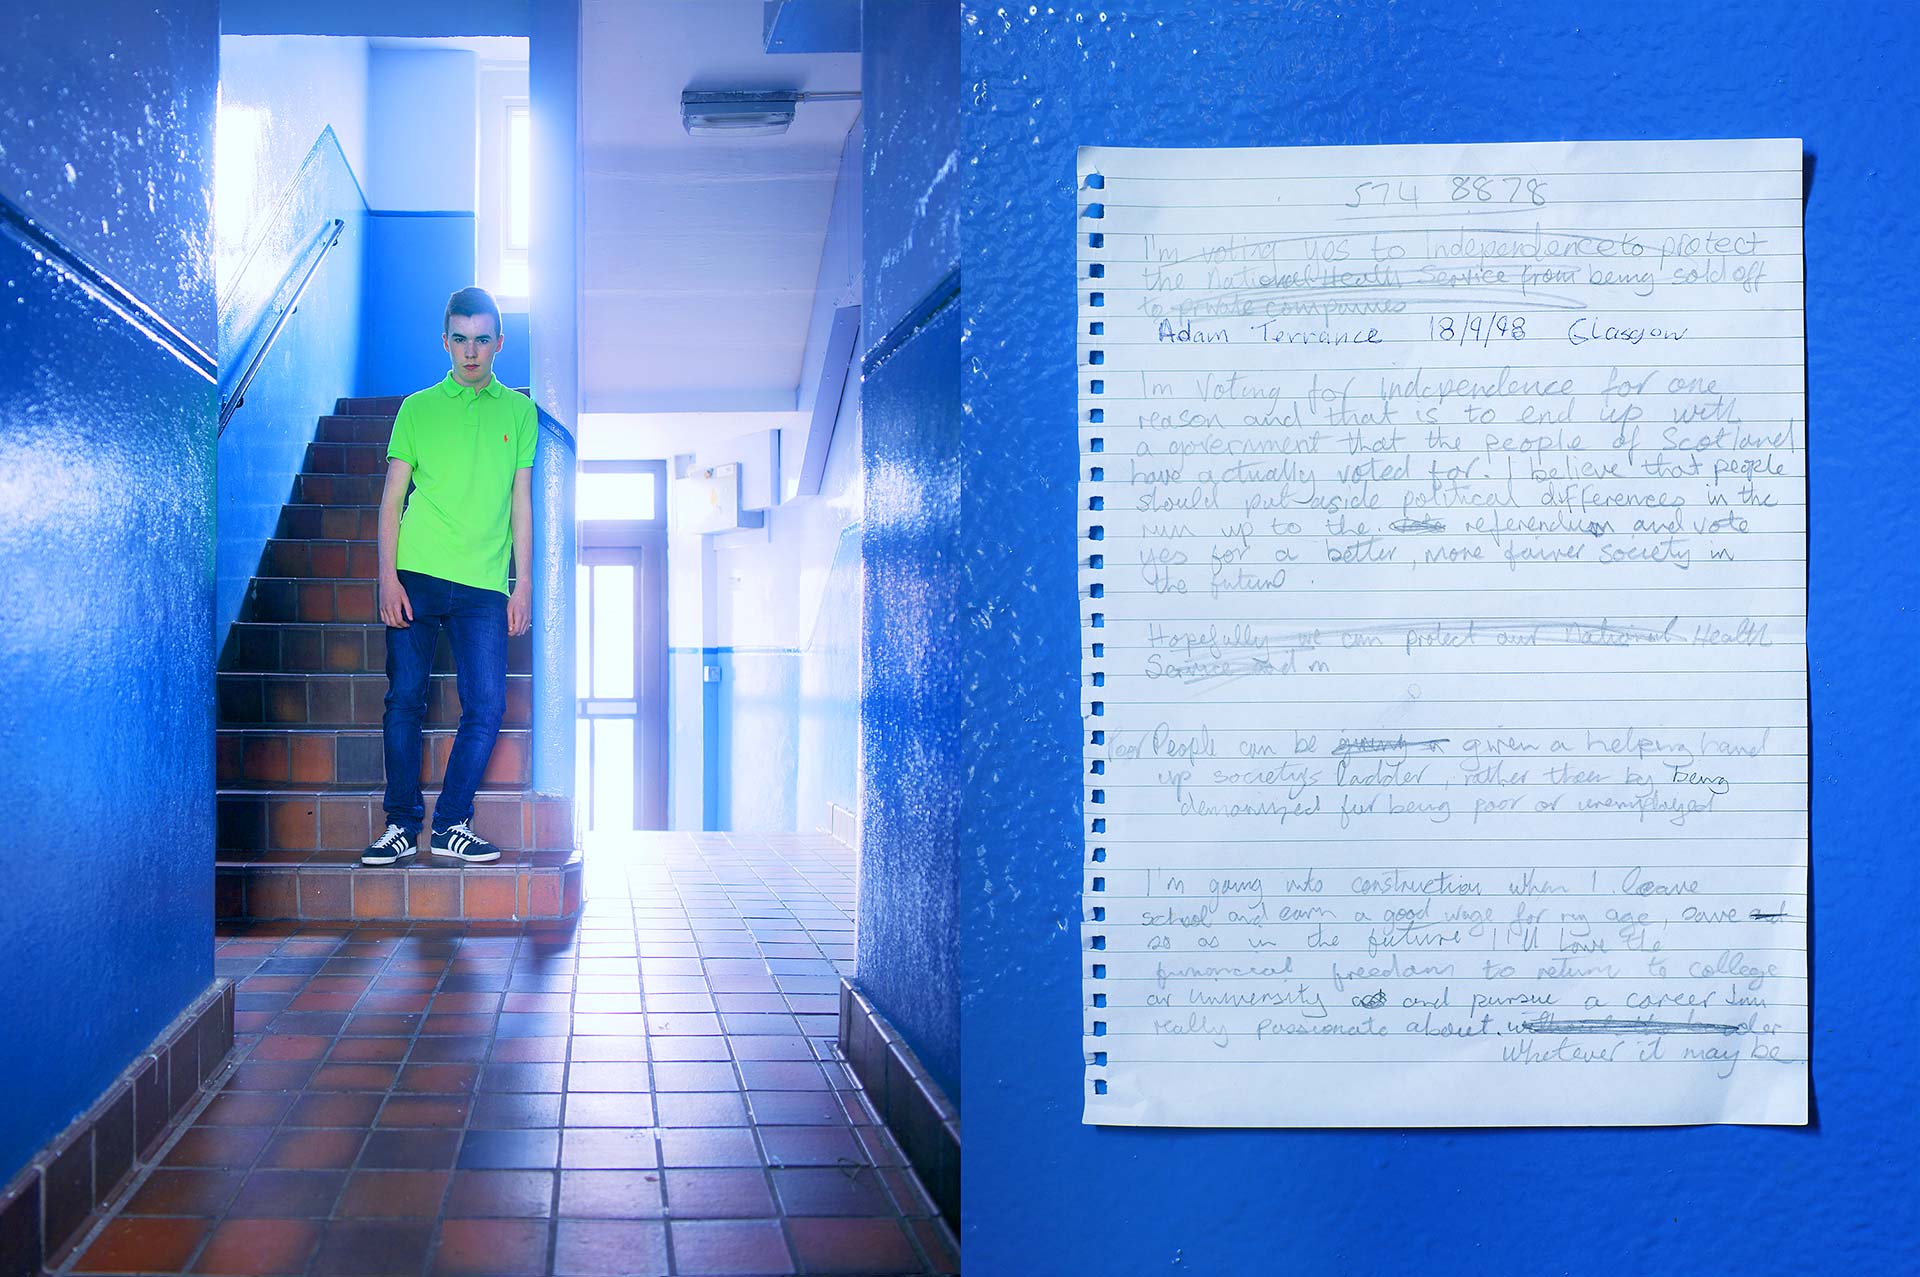 574 8878
I'm voting yes to Independence to protect
the National Health Service from being sold off
to private companies
Adam Terrance 18/9/98 Glasgow
Im Voting for independence for one
reason and that is to end up with
a government that the people of Scotland
have actually voted for. I believe that people
should put aside political differences in the
run up to the referendum and vote
yes for a better, more fairer society in
the future.
Hopefully we can protect our National Health
Service and in
Poor People can be given a helping hand
up society's ladder, rather then by being
demonized for being poor or unemployed
I'm going into construction when I leave
school and earn a good wage for my age, save
so as in the future I'll have the
financial freedom to return to college
or university and pursue a career Im
really passionate about.
Whatever it may be.